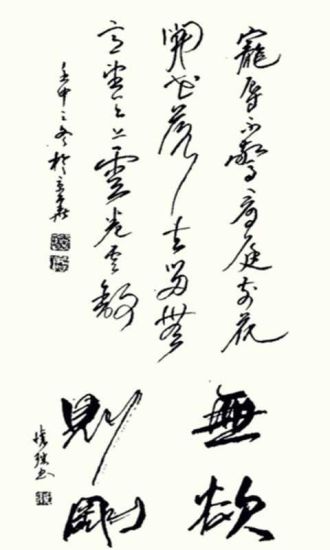 寵辱不驚看庭前花
開花落去留無
意望天上雲卷雲舒
壬申之冬於
無欲
則剛